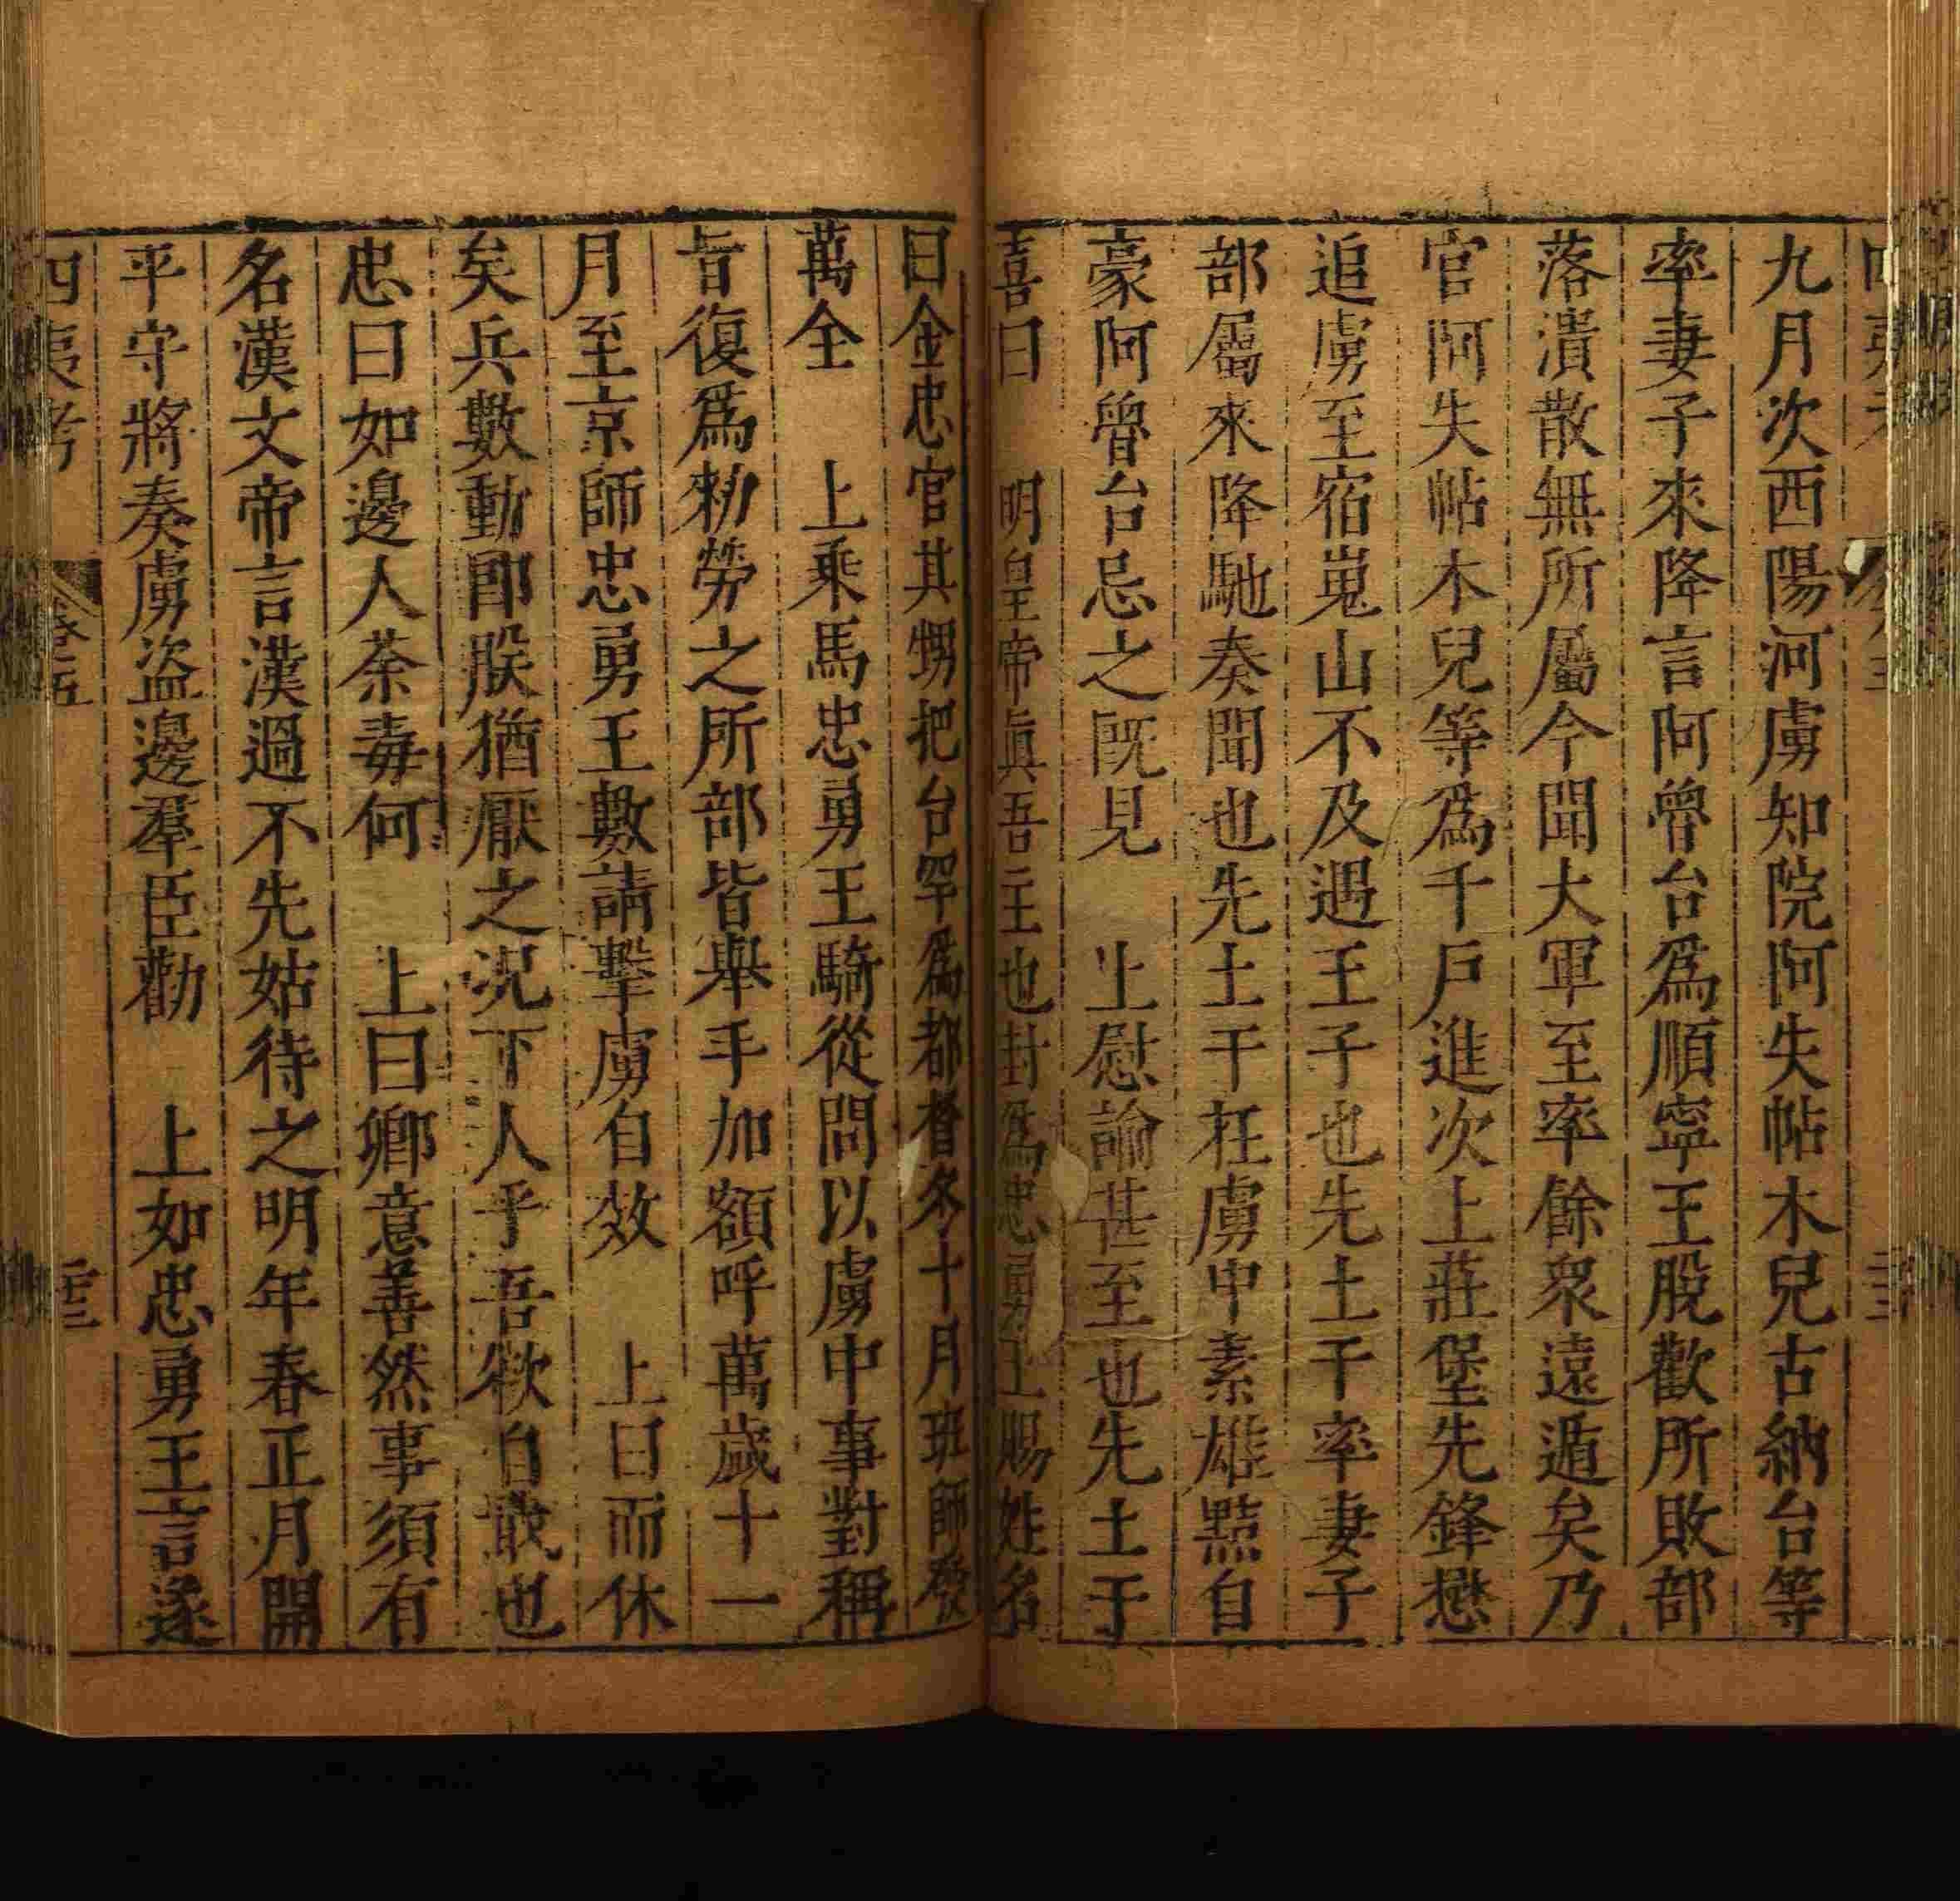 九月次西陽河虜知院阿失帖木兒古納台等
率妻子來降言阿魯台爲順寧王脫歡所敗部
落潰散無所屬今聞大軍至率餘衆遠遁矣乃
官阿失帖木兒等爲千戶進次上莊堡先鋒懋
追虜至宿嵬山不及遇王子也先土干率妻子
部屬來降馳奏聞也先土干在虜中素雄黠自
豪阿魯台忌之既見　上慰諭甚至也先土于
喜曰　明皇帝眞吾主也封爲忠勇王賜姓名
曰金忠官其甥把台罕爲都督冬十月班師發
萬全　上乘馬忠勇王騎從問以虜中事對稱
旨復爲勑勞之所部皆舉手加額呼萬歲十一
月至京師忠勇王數請擊虜自效　上曰而休
矣兵數動卽朕猶厭之況下人乎吾欲自戢也
忠曰如邊人荼毒何　上曰鄉意善然事須有
名漢文帝言漢過不先姑待之明年春正月開
平守將奏虜盜邊羣臣勸　上如忠勇王言遂
四夷考
卷五